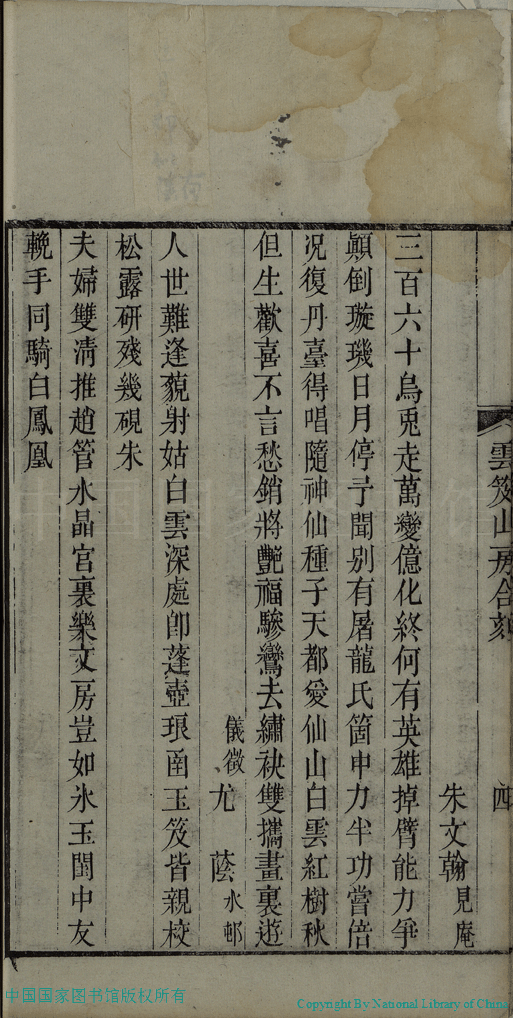 雲笈山房合刻
四
朱文翰見庵
三百六十烏兎走萬變億化終何有英雄掉臂能力爭
顛倒璇璣日月停予聞別有屠龍氏箇中力半功嘗倍
况復丹臺得唱隨神仙種子天都愛仙山白雲紅樹秋
但生歡喜不言愁銷將艷福驂鸞去繡袂雙攜畫裏遊
儀徵尤蔭水邨
人世難逢藐射姑白雲深處卽蓬壺琅函玉笈皆親校
松露研殘幾硯朱
夫婦雙淸推趙管水晶宮裏樂文房豈如氷玉閨中友
輓手同騎白鳳凰
中国国家图书馆版权所有
Copyright By National Library of China